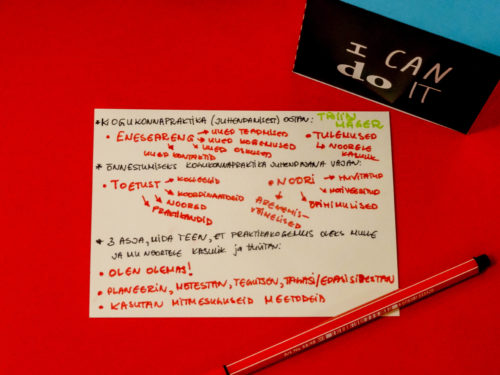 I CAN
do IT
* KOGUKONNAPRAKTIKA (JUHENDAMISEST) OOTAN:
TRIIN
MÄGER
• ENESEARENG → UUED TEADMISED
→ UUED KOGEMUSED
→ UUED OSKUSED
UUED KONTAKTID
• TULEMUSED
↳ NOORELE
KASULIK
* ÕNNESTUMISEKS KOGUKONNAPRAKTIKA JUHENDAJANA VAJAN:
• TOETUST → KOLLEEGID
→ KOORDINAATORID
→ NOORED
→ PRAKTIKANDID
• NOORI → HUVITATUD
→ MOTIVEERITUD
→ ÕPIHIMULISED
ARENEMIS-
VÕIMELISED
* 3 ASJA, MIDA TEEN, ET PRAKTIKAKOGEMUS OLEKS MULLE
JA MU NOORTELE KASULIK JA HUVITAV:
• OLEN OLEMAS!
• PLANEERIN, MÕTESTAN, TEGUTSEN, TAGASI/EDASISIDESTAN
• KASUTAN MITMESUGUSEID MEETODEID